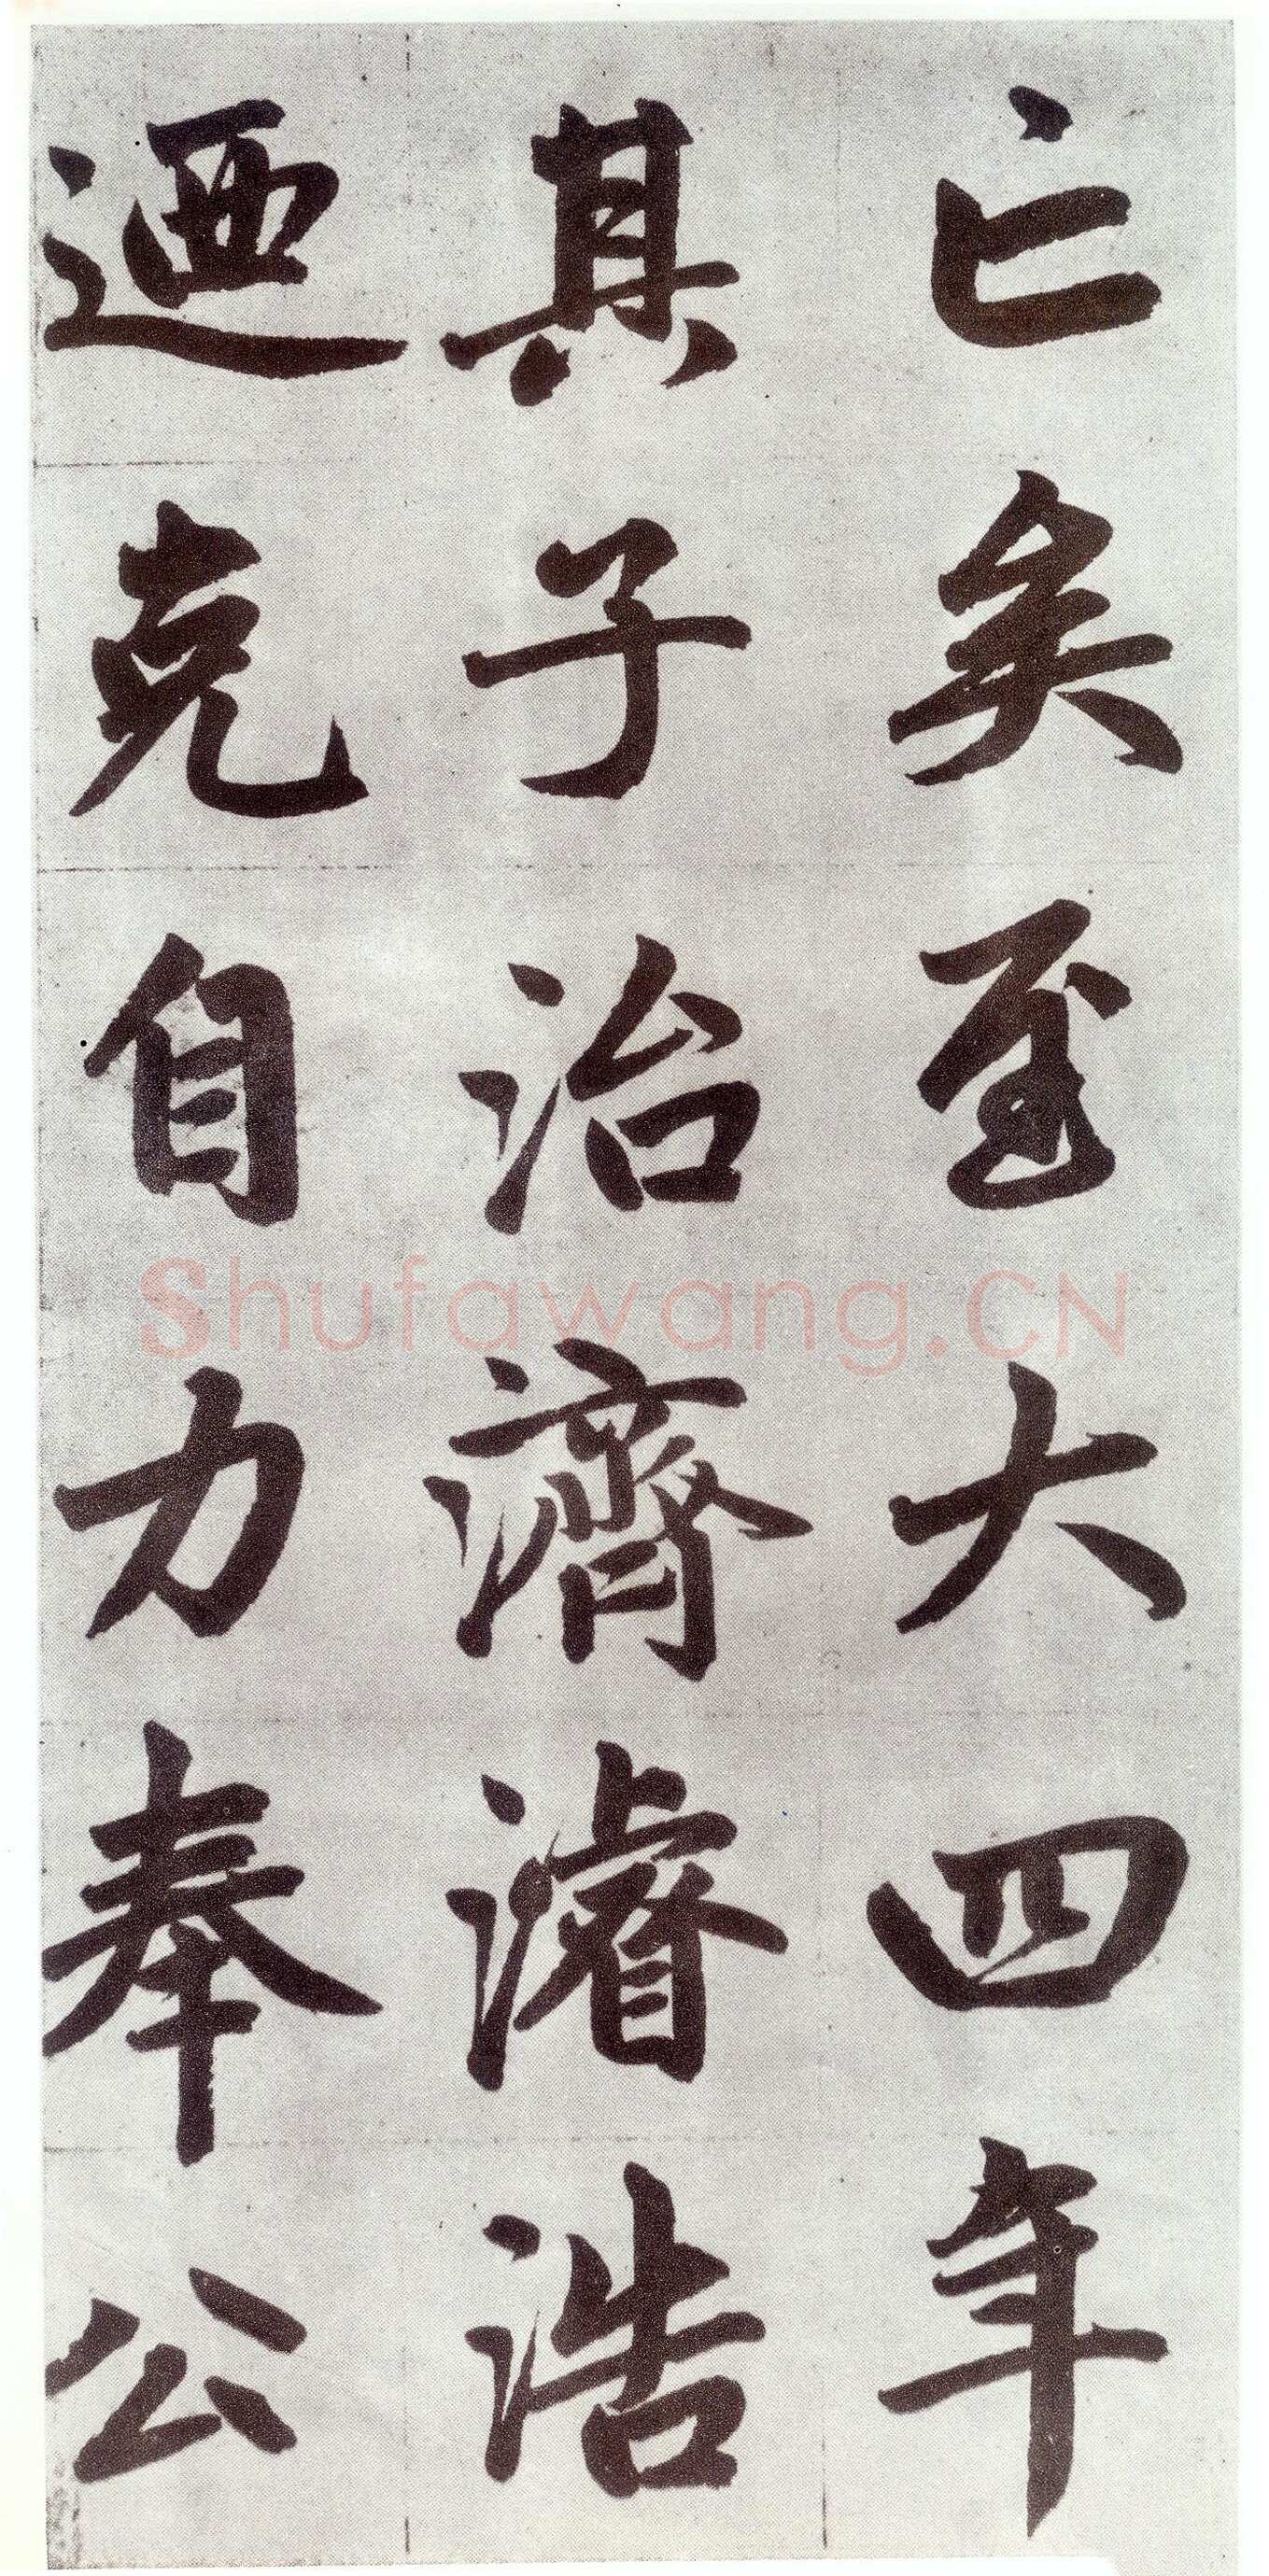 亡矣至大四年
其子治濟濬浩
迺克自力奉公
Shufawang.CN